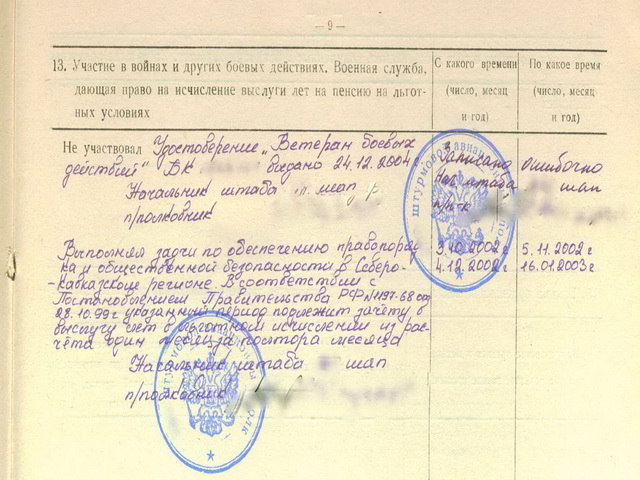 — 9 —
13. Участие в войнах и других боевых действиях. Военная служба, дающая право на исчисление выслуги лет на пенсию на льготных условиях
С какого времени (число, месяц и год)
По какое время (число, месяц и год)
Не участвовал Удостоверение „Ветеран боевых
действий" БК выдано 24.12.2004 г.
Начальник штаба шап
п/полковник
Записано ошибочно
нач. штаба шап
п/п-к
штурмовой авиационный полк
Выполнял задчи по обеспечению правопоряд-
ка и общественной безопасности в Северо-
-Кавказском регионе. В соответствии с
Постановлением Правительства РФ №1197-68 от
28.10.99 г указанный период подлежит зачёту в
выслугу лет в льготном исчислении из рас-
чёта один месяц за полтора месяца
3.10.2002 г 5.11.2002 г
4.12.2002 г 16.01.2003 г
Начальник штаба шап
п/полковник